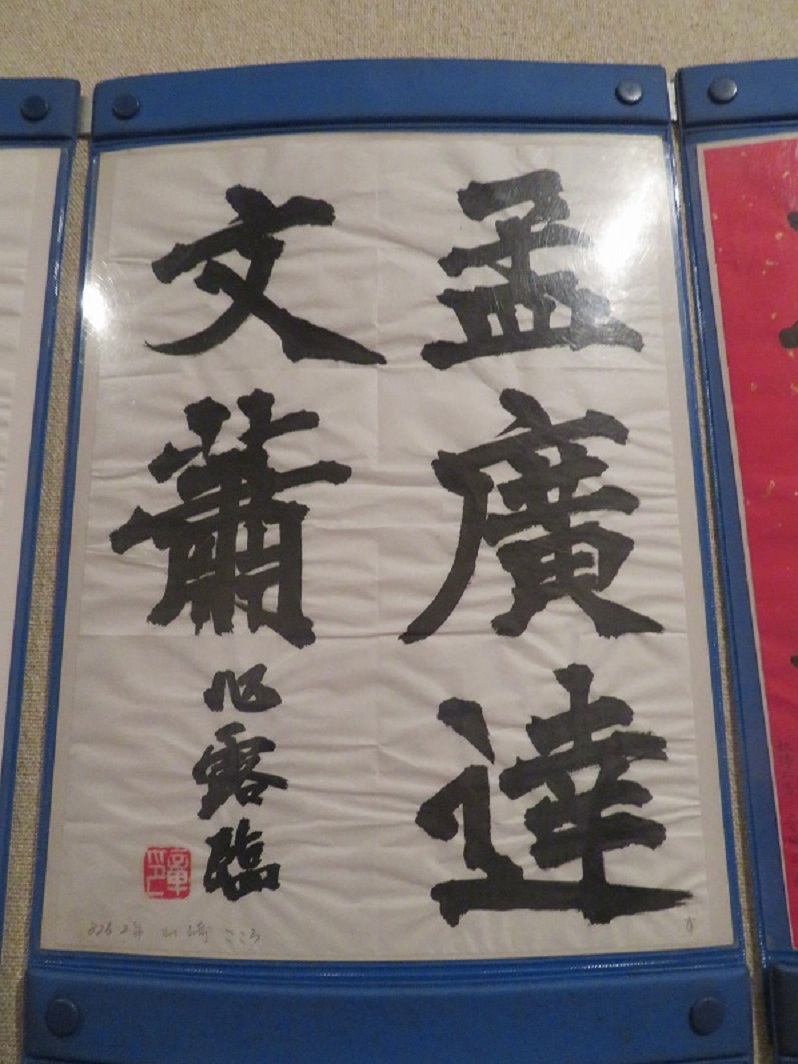 孟廣達
文蕭
心露臨
2年 山崎 こころ